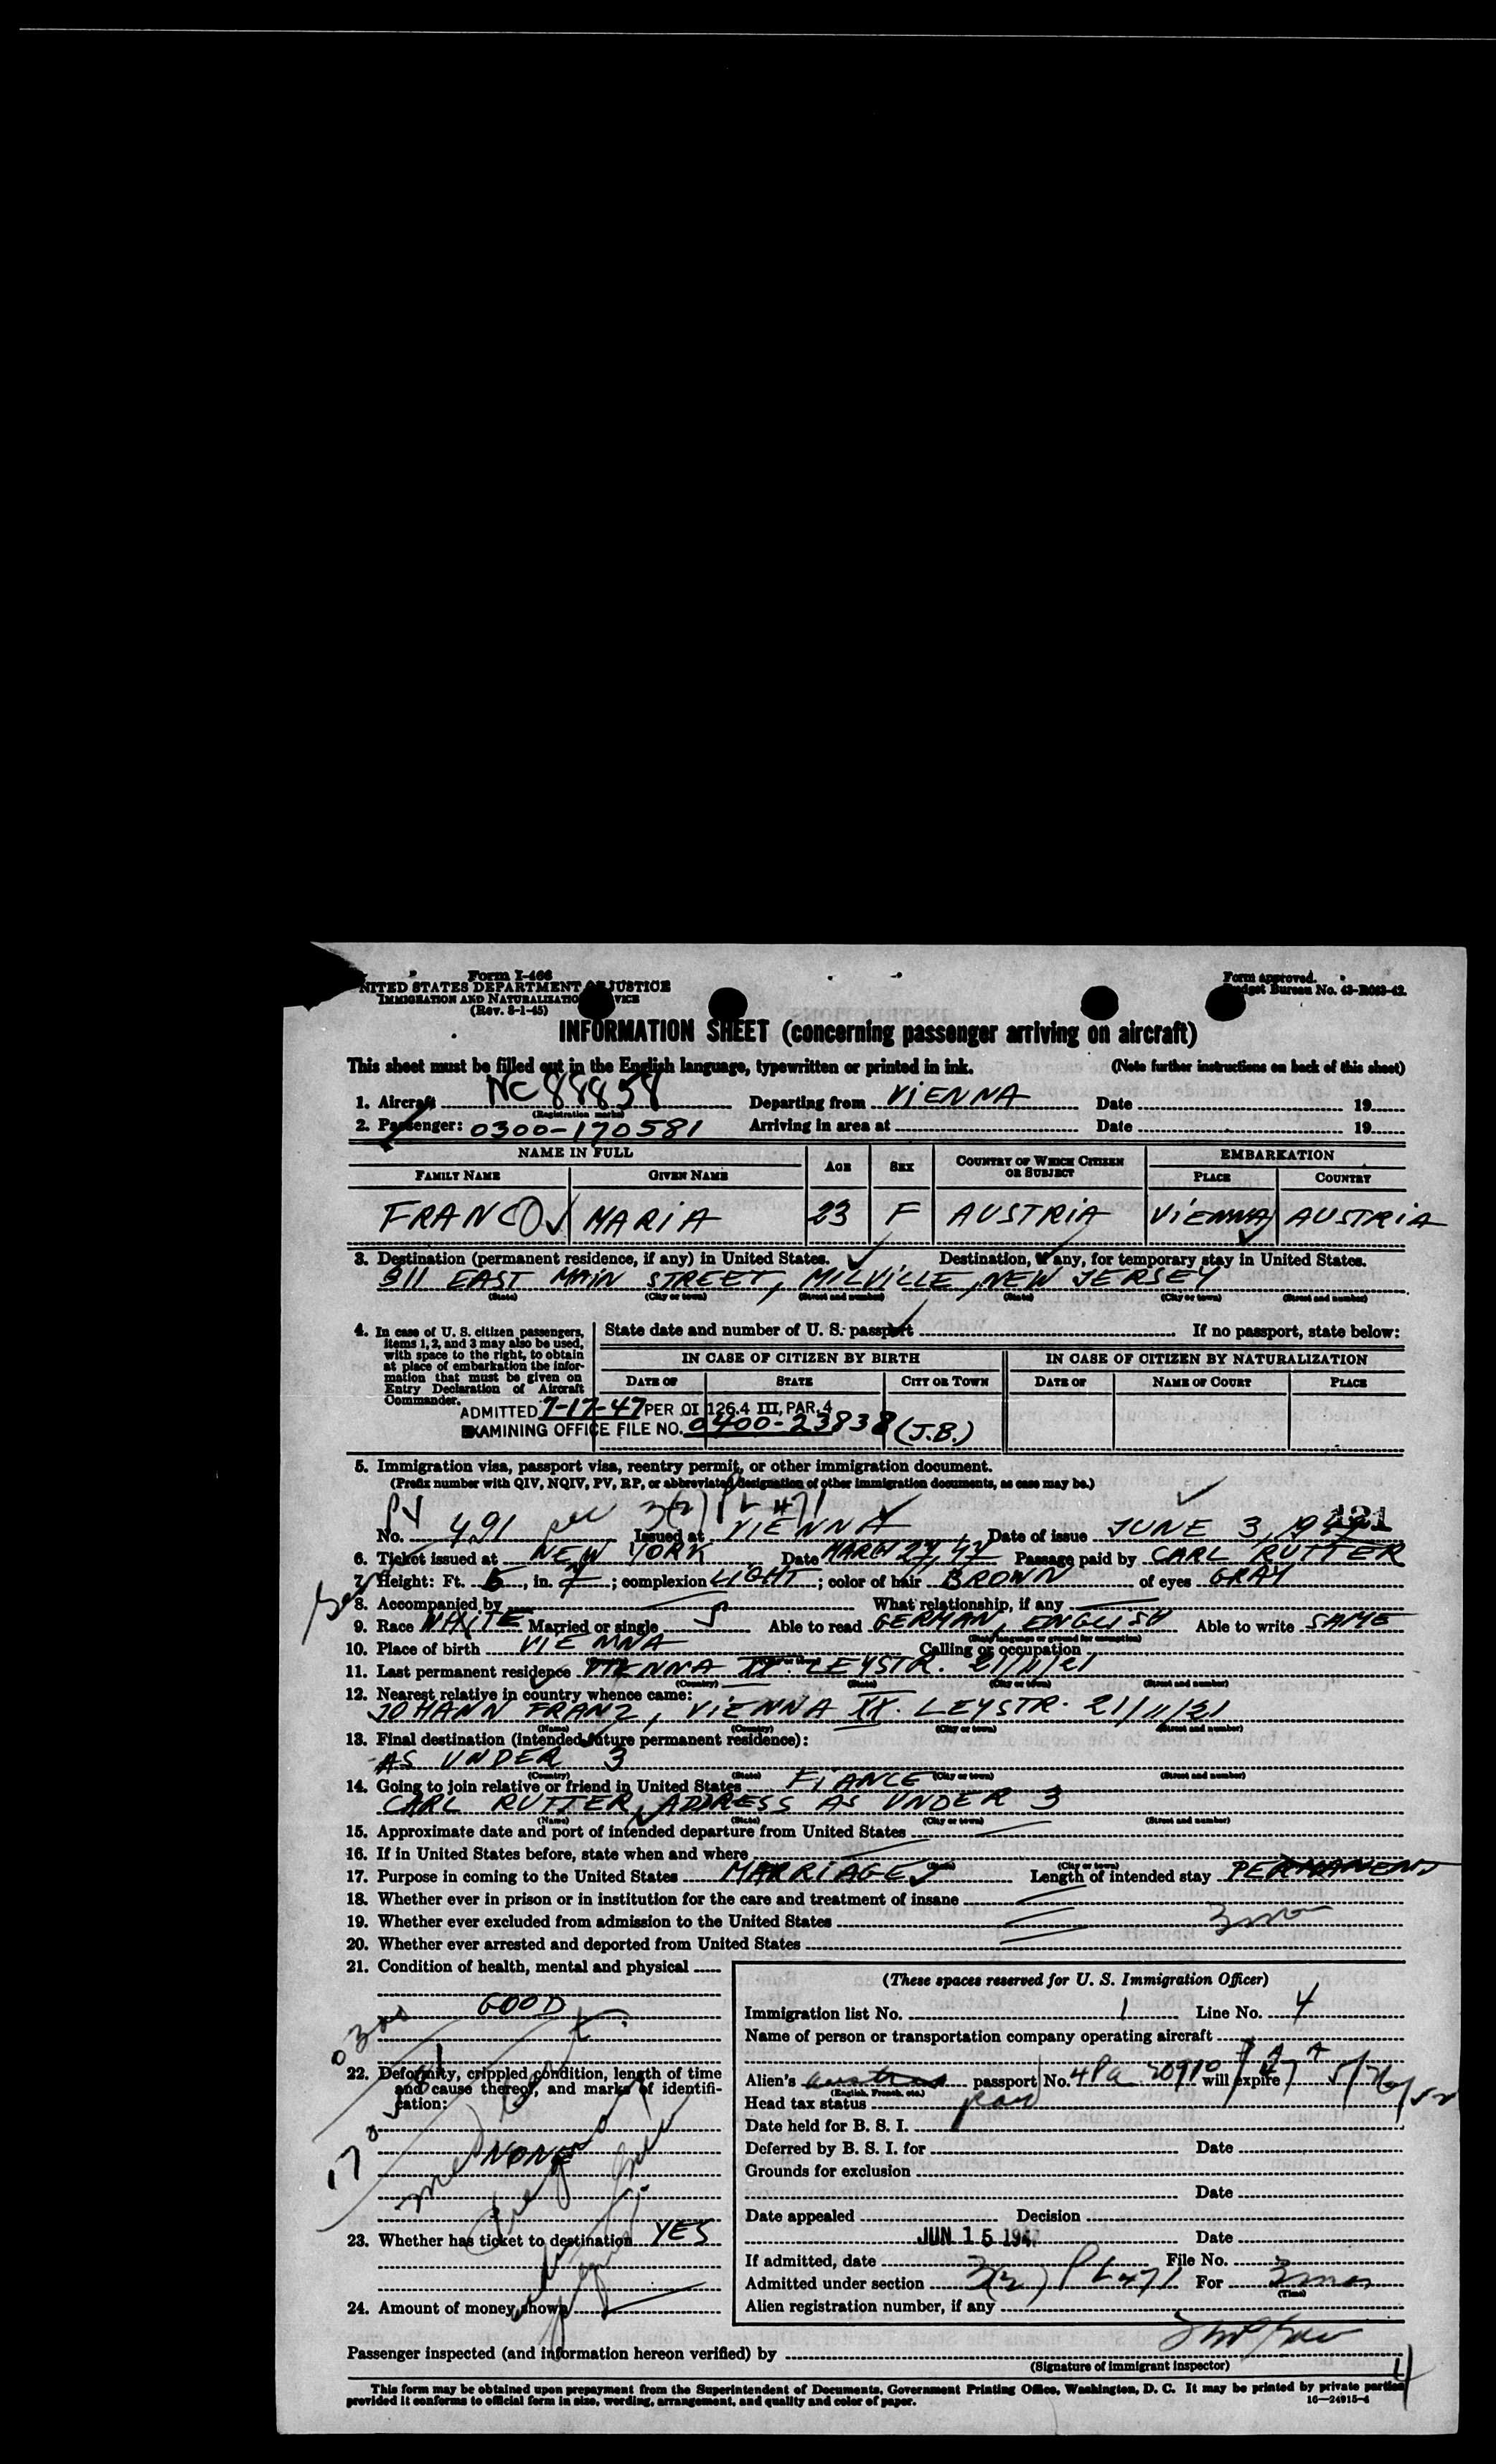 Form I-466
UNITED STATES DEPARTMENT OF JUSTICE
IMMIGRATION AND NATURALIZATION SERVICE
(Rev. 8-1-45)
Form approved.
Budget Bureau No. 43-R083-42.
INFORMATION SHEET (concerning passenger arriving on aircraft)
This sheet must be filled out in the English language, typewritten or printed in ink. (Note further instructions on back of this sheet)
1. Aircraft NC 88858 Departing from VIENNA Date 19
(Registration marks)
2. Passenger: 0300-170581 Arriving in area at Date 19
NAME IN FULL AGE SEX COUNTRY OF WHICH CITIZEN OR SUBJECT EMBARKATION
FAMILY NAME GIVEN NAME PLACE COUNTRY
FRANCO MARIA 23 F AUSTRIA VIENNA AUSTRIA
3. Destination (permanent residence, if any) in United States. Destination, if any, for temporary stay in United States.
311 EAST MAIN STREET, MILVILLE, NEW JERSEY
(State) (City or town) (Street and number) (State) (City or town) (Street and number)
4. In case of U. S. citizen passengers, items 1, 2, and 3 may also be used, with space to the right, to obtain at place of embarkation the information that must be given on Entry Declaration of Aircraft Commander.
State date and number of U. S. passport If no passport, state below:
IN CASE OF CITIZEN BY BIRTH IN CASE OF CITIZEN BY NATURALIZATION
DATE OF STATE CITY OR TOWN DATE OF NAME OF COURT PLACE
ADMITTED 7-17-47 PER OI 126.4 III, PAR. 4
EXAMINING OFFICE FILE NO. 0400-23838 (J.B.)
5. Immigration visa, passport visa, reentry permit, or other immigration document.
(Prefix number with QIV, NQIV, PV, RP, or abbreviated designation of other immigration documents, as case may be.)
PV sec 3(2) PL 471
121
No. 491 Issued at VIENNA Date of issue JUNE 3, 1947
6. Ticket issued at NEW YORK Date MARCH 27, 47 Passage paid by CARL RUTTER
7. Height: Ft. 5, in. 7; complexion LIGHT; color of hair BROWN of eyes GRAY
8. Accompanied by What relationship, if any
9. Race WHITE Married or single S Able to read GERMAN, ENGLISH Able to write SAME
(State language or ground for exemption)
10. Place of birth VIENNA Calling or occupation
11. Last permanent residence VIENNA XX. LEYSTR. 21/11/21
(Country) (State) (City or town) (Street and number)
12. Nearest relative in country whence came:
JOHANN FRANZ, VIENNA XX. LEYSTR. 21/11/21
(Name) (Country) (City or town) (Street and number)
13. Final destination (intended future permanent residence):
AS UNDER 3
(Country) (State) (City or town) (Street and number)
14. Going to join relative or friend in United States FIANCE
CARL RUTTER, ADDRESS AS UNDER 3
(Name) (State) (City or town) (Street and number)
15. Approximate date and port of intended departure from United States
16. If in United States before, state when and where
(State) (City or town)
17. Purpose in coming to the United States MARRIAGE Length of intended stay PERMANENT
18. Whether ever in prison or in institution for the care and treatment of insane
19. Whether ever excluded from admission to the United States 3 mo
20. Whether ever arrested and deported from United States
21. Condition of health, mental and physical
GOOD
22. Deformity, crippled condition, length of time and cause thereof, and marks of identification:
NONE
23. Whether has ticket to destination YES
24. Amount of money shown
(These spaces reserved for U. S. Immigration Officer)
Immigration list No. 1 Line No. 4
Name of person or transportation company operating aircraft
Alien's passport No. 4Pa 20910/47 will expire 5/26/52
(English, French, etc.)
Head tax status paid
Date held for B. S. I.
Deferred by B. S. I. for Date
Grounds for exclusion
Date
Date appealed Decision
JUN 15 1947 Date
If admitted, date File No.
Admitted under section 3(2) PL 471 For 3 mos
(Time)
Alien registration number, if any
Passenger inspected (and information hereon verified) by
(Signature of immigrant inspector)
4
This form may be obtained upon prepayment from the Superintendent of Documents, Government Printing Office, Washington, D. C. It may be printed by private parties
provided it conforms to official form in size, wording, arrangement, and quality and color of paper. 16—24915-4